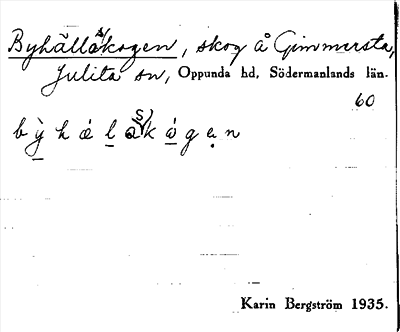 Byhälläskogen, skog å Gimmersta,
Julita sn, Oppunda hd, Södermanlands län.
60
Karin Bergström 1935.